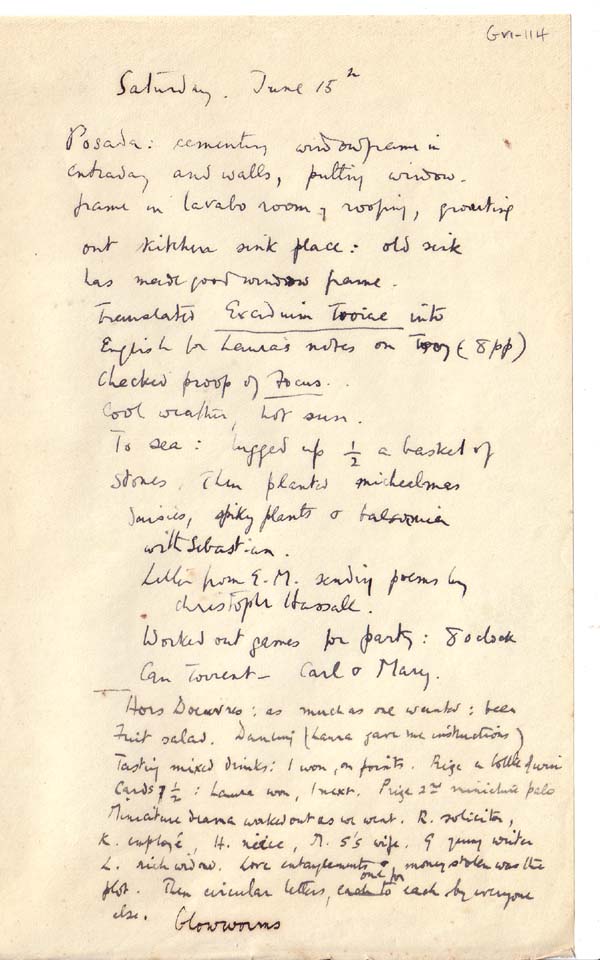 GM-114
Saturday. June 15th
Posada: cementing windowframe in
entrada, and walls, putting window-
frame in lavabo room, roofing, grouting
out kitchen sink place: old sink
has made good window frame.
Translated Excidium Troiae into
English for Laura's notes on Troy (8 pp)
Checked proof of Focus.
Cool weather, hot sun.
To sea: lugged up ½ a basket of
stones. Then planted michaelmas
daisies, spiky plants & balsamia
with Sebastian.
Letter from E.M. sending poems by
Christopher Hassall.
Worked out games for party: 8 oclock
Can Torrent - Carl & Mary.
Hors Doeuvres: as much as one wanted: beer
Fruit salad. Dancing (Laura gave me instructions)
Tasting mixed drinks: I won, on points. Prize a bottle of wine
Cards 7½: Laura won, I next. Prize 2nd miniature palo
Miniature drama worked out as we went. R. solicitor,
K. employé, H. niece, M. S's wife. G young writer
L. rich widow. Love entanglements & money stolen was the
plot. Then circular letters, one for each by everyone
else. Glowworms